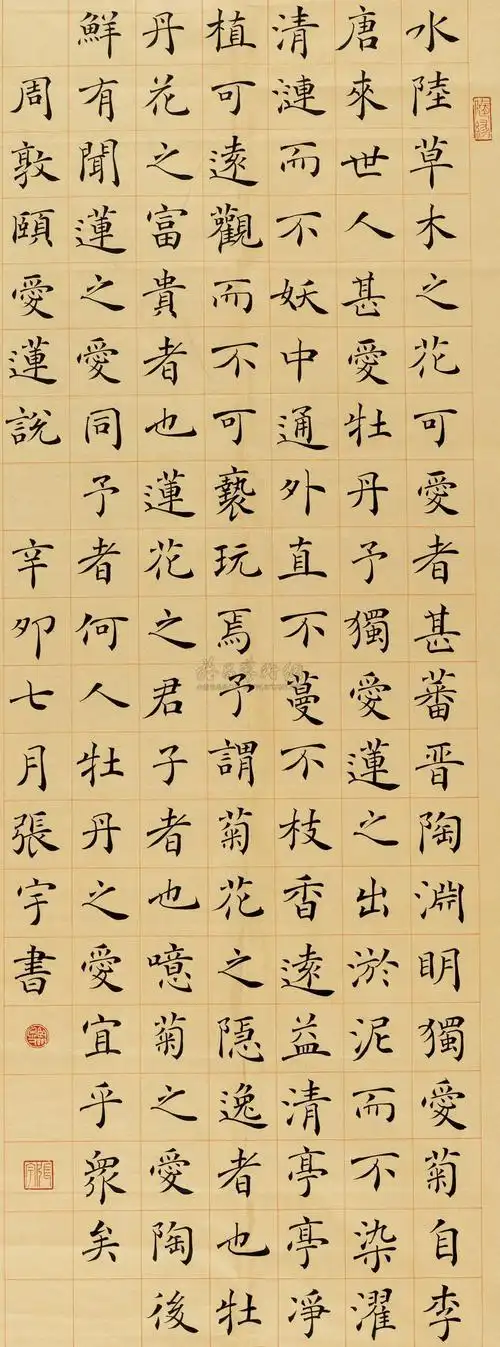 水陸草木之花可愛者甚蕃晋陶淵明獨愛菊自李
唐來世人甚愛牡丹予獨愛蓮之出淤泥而不染濯
清漣而不妖中通外直不蔓不枝香遠益清亭亭凈
植可遠觀而不可褻玩焉予謂菊花之隱逸者也牡
丹花之富貴者也蓮花之君子者也噫菊之愛陶後
鮮有聞蓮之愛同予者何人牡丹之愛宜乎眾矣
周敦頤愛蓮說 辛卯七月張宇書